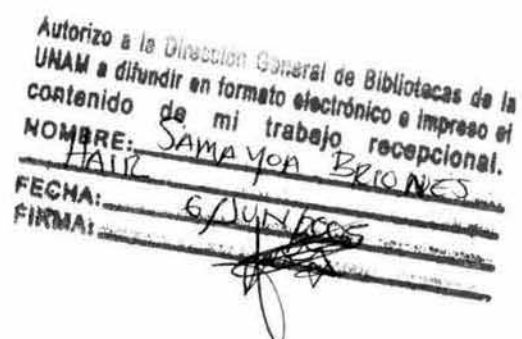 Autorizo a la Dirección General de Bibliotecas de la
UNAM a difundir en formato electrónico e impreso el
contenido de mi trabajo recepcional.
NOMBRE: SAMAYOA BRIONES
HAIR
FECHA: 6/JUN/2005
FIRMA: